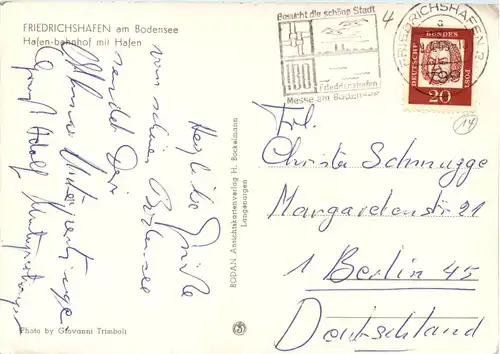 FRIEDRICHSHAFEN am Bodensee
Hafenbahnhof mit Hafen
Herzliche Grüße
vom schönen Bodensee
sendet Dir
Gustl Adolf
Photo by Giovanni Trimboli
BODAN Ansichtskartenverlag H. Bockelmann
Langenargen
Besucht die schöne Stadt
IBO
Friedrichshafen
Messe am Bodensee
4
FRIEDRICHSHAFEN 2
a
DEUTSCHE BUNDESPOST
20
14
Frl.
Christa Schmugge
Margaretenstr. 21
1 Berlin 45
Deutschland